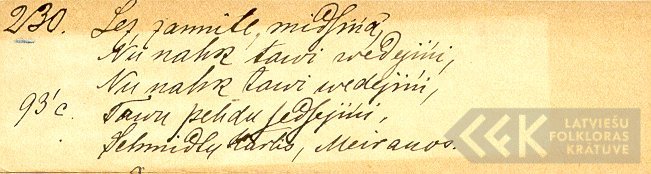 230. Lez zannite, midsiņa,
Nu nahk tawi wedejiņi,
Nu nahk tawi wedejiņi,
93'c. Tawu pehdu sedsejiņi,
Schmidtu Karlis, Meiranos.
LFK LATVIEŠU
FOLKLORAS
KRĀTUVE